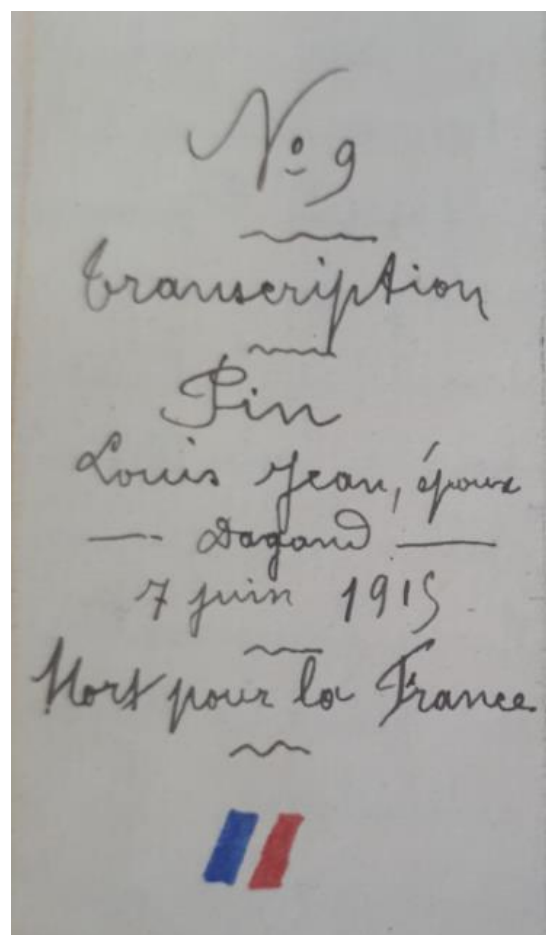 Nº 9
Transcription
Pin
Louis Jean, époux
— Dagand —
7 juin 1915
Mort pour la France